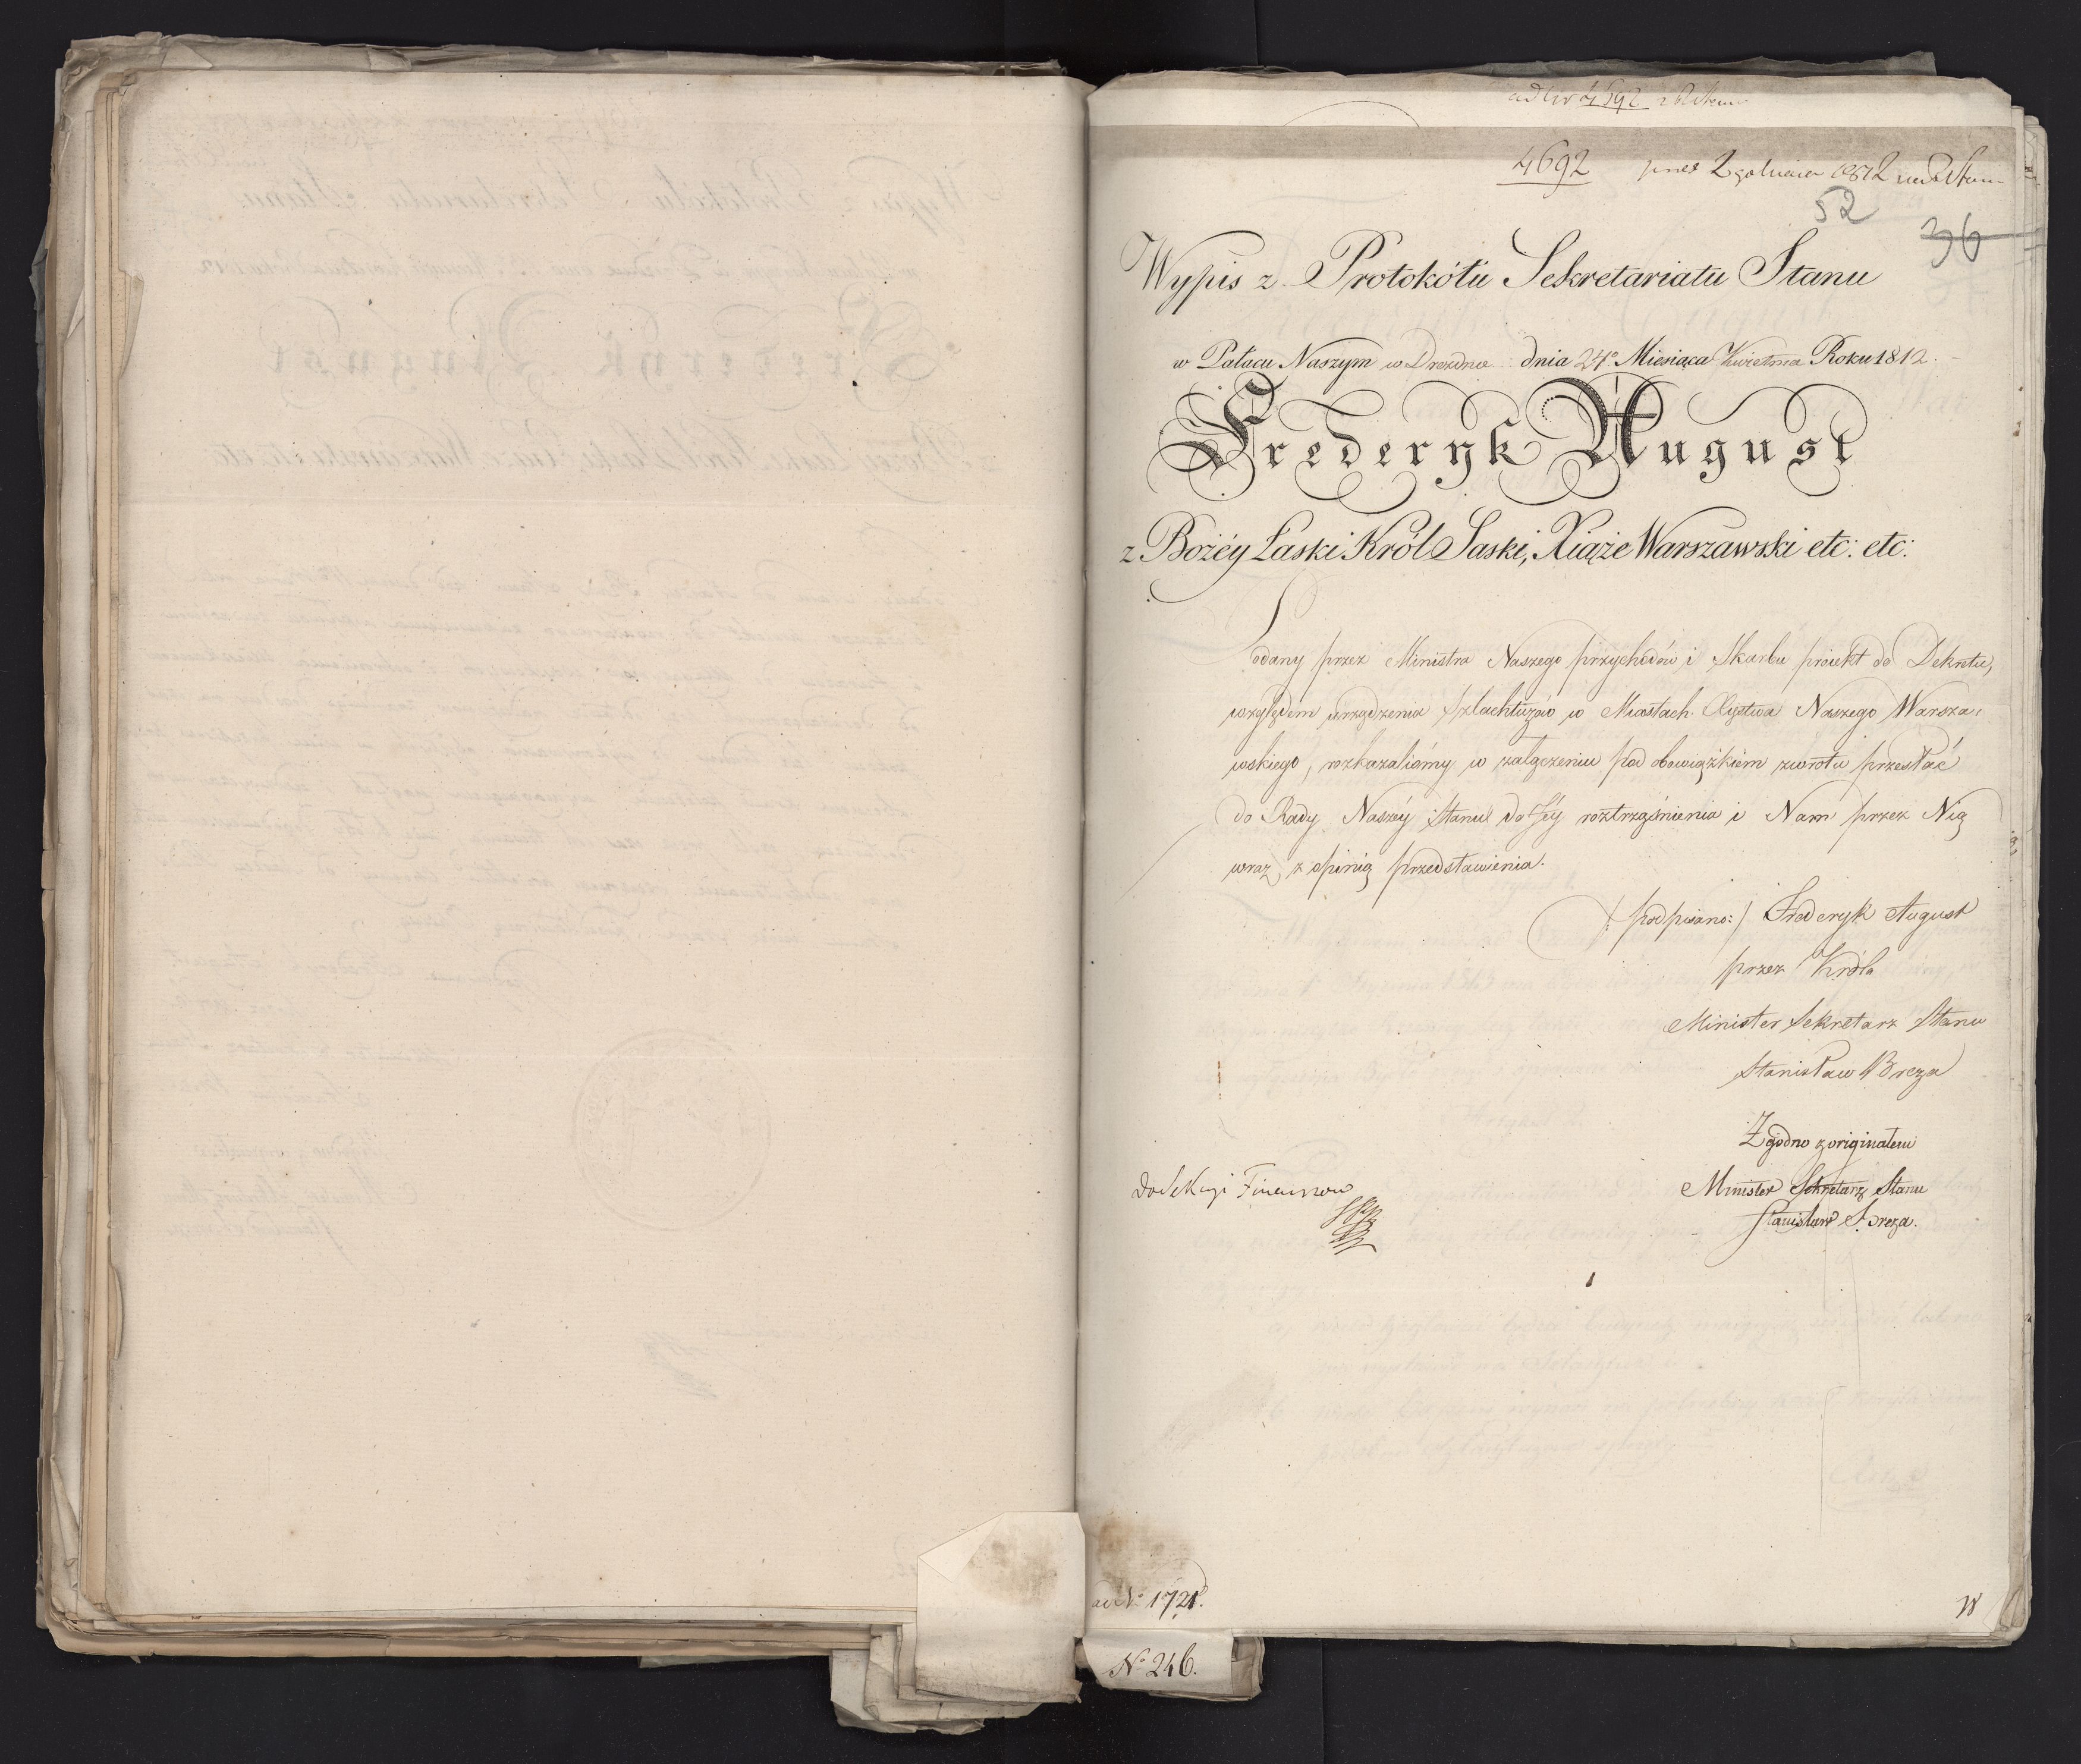 ad Nr 4692
4692 2 1812
52
36
Wypis z Protokółu Sekretariatu Stanu
w Pałacu Naszym w Dreznie dnia 24o Miesiąca Kwietnia Roku 1812.
Frederyk August
z Bożéy Łaski Król Saski, Xiąże Warszawski etc: etc:
Podany przez Ministra Naszego przychodów i Skarbu proiekt do Dekretu,
względem urządzenia Szlachtuzów w Miastach Xięstwa Naszego Warsza-
wskiego, rozkazaliśmy w załączeniu pod obowiązkiem zwrotu przesłać
do Rady Naszéy Stanu do Jéy roztrząśnienia i Nam przez Nię
wraz z opinią przedstawienia.
/:podpisano:/ Frederyk August
przez Króla
Minister Sekretarz Stanu
Stanisław Breza
Zgodno z originałem
Minister Sekretarz Stanu
Stanisław Breza.
do Sekcyi Finansow
ad No 1721.
No 246.